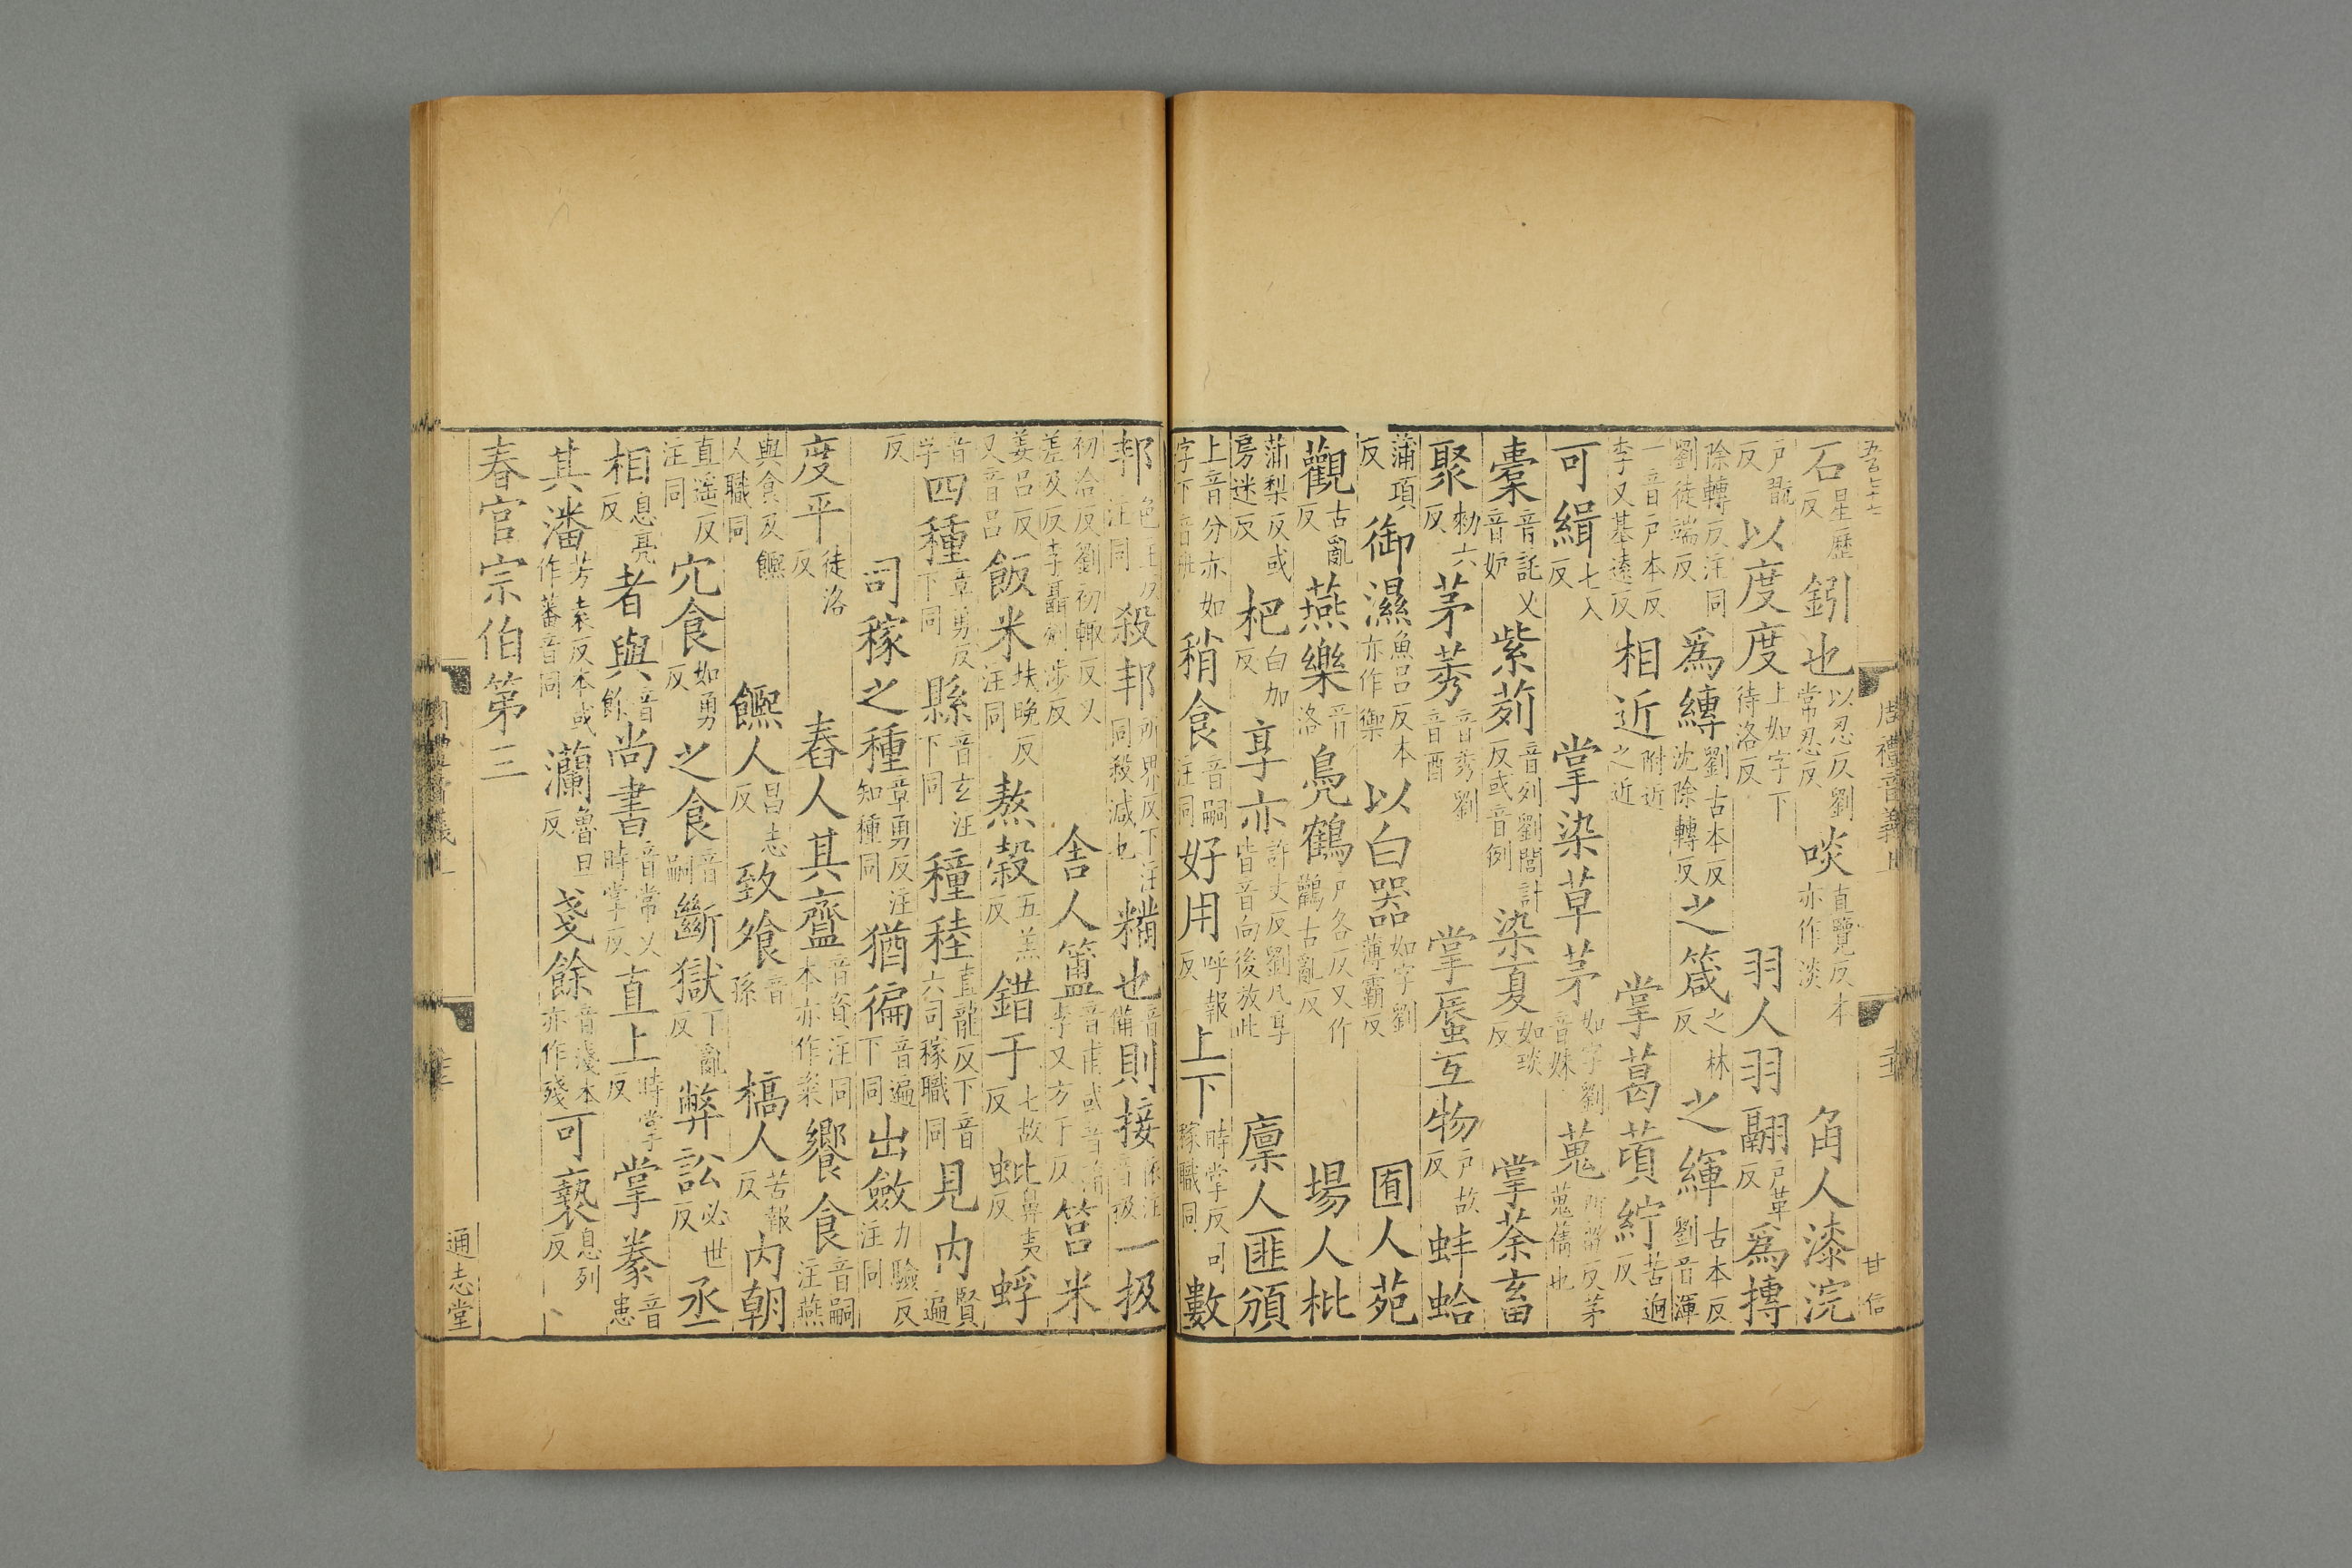 周禮音義上
甘信
石星歷反釰也以忍反劉常忍反啖直覽反本亦作淡 角人漆浣
戶翫反以度度上如字下待洛反 羽人羽翮戶革反爲摶
除轉反注同劉徒端反爲縳劉古本反沈除轉反之箴之林反之緷古本反劉音渾
一音戶本反李又基遠反相近附近之近 掌葛䔛紵苦迥反
可緝七入反 掌染草茅如字劉音妹蒐所留反茅蒐蒨也
橐音託又音妒紫茢音列劉閭計反或音例染夏如琰反 掌荼畜
聚勑六反茅莠音秀劉音酉 掌蜃互物戶故反蚌蛤
蒲項反御濕魚呂反本亦作禦 以白器如字劉薄霸反 囿人苑
觀古亂反燕樂音洛鳧鶴戶各反又作鸛古亂反 場人枇
蒲梨反或房迷反杷白加反 享亦許丈反劉凡享皆音向後放此 廩人匪頒
上音分亦如字下音班稍食音嗣注同好用呼報反上下時掌反司稼職同數
邦色主反注同殺邦所界反下注同殺減也糒也音備則接依注音扱一扱
初洽反劉初輒反又差及反李聶創涉反 舍人簠音甫或音蒲李又方于反筥米
姜呂反又音呂飯米扶晚反注同熬穀五羔反錯于七故反蚍鼻夷反蜉
音孚四種章勇反下同縣音玄注下同穜稑直龍反下音六司稼職同見内賢遍
反 司稼之種章勇反注知種同猶徧音遍下同出斂力驗反注同
度平徒洛反 舂人其齍音資注同本亦作粢饗食音嗣注燕
與食及饎人職同 饎人昌志反致飧音孫 槁人苦報反内朝
直遥反注同 宂食如勇反之食音嗣斷獄丁亂反弊訟必世反丞
相息亮反者與音餘尚書音常又時掌反直上時掌反掌豢音患
其潘芳袁反本或作蕃音同灡魯旦反戔餘音淺本亦作殘可褻息列反
春官宗伯第三
通志堂